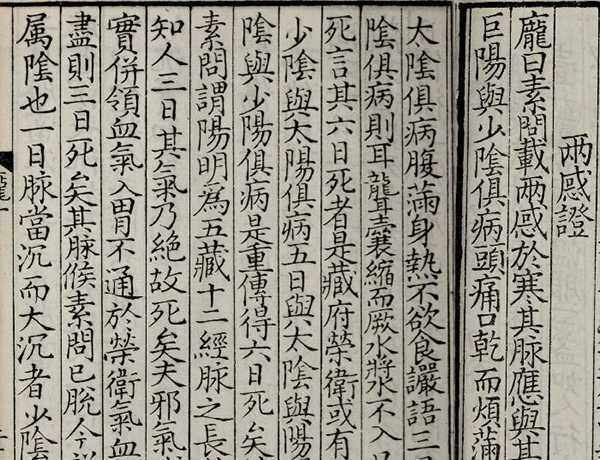 兩感證
龐曰素問載兩感於寒其脉應與其
巨陽與少陰俱病頭痛口乾而煩滿
太陰俱病腹滿身熱不欲食讝語三
陰俱病則耳聾囊縮而厥水漿不入
死言其六日死者是藏府榮衛或有
少陰與大陽俱病五日與太陰與陽
陰與少陽俱病是重傳得六日死矣
素問謂陽明爲五藏十二經脉之長
知人三日其氣乃絶故死矣夫邪氣
實併領血氣入胃不通於榮衛氣血
盡則三日死矣其脉候素問已脫今
属陰也一日脉當沉而大沉者少陰